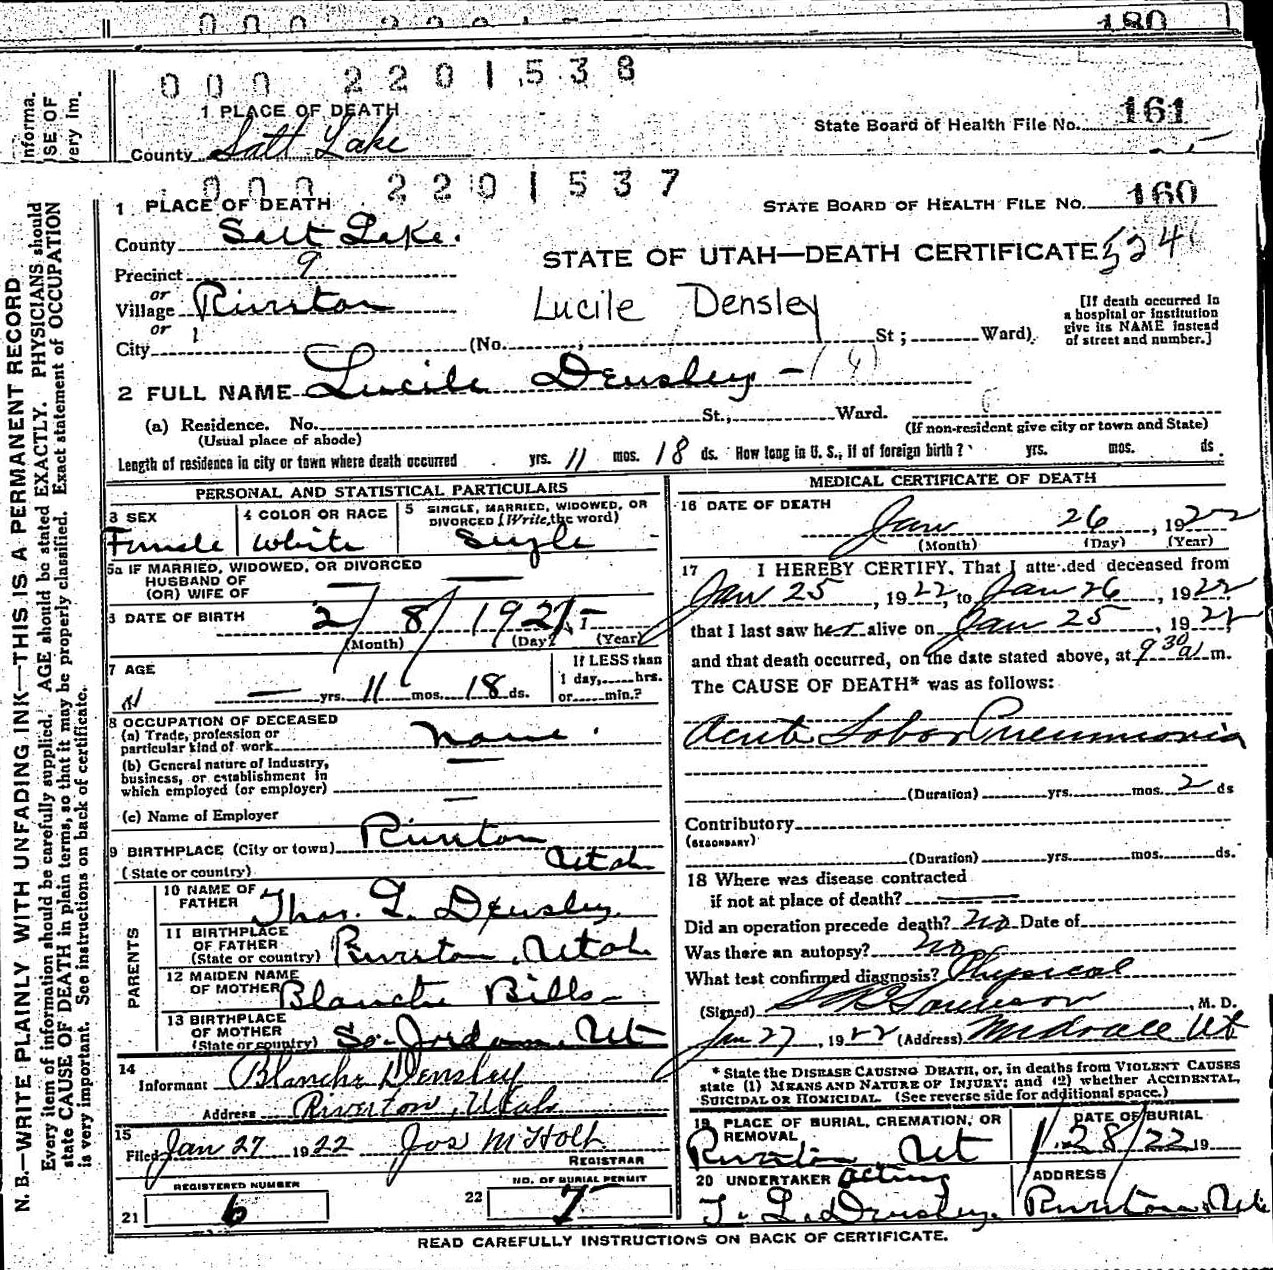 180
000 2201538
1 PLACE OF DEATH
County Salt Lake
State Board of Health File No. 161
000 2201537
1 PLACE OF DEATH
STATE BOARD OF HEALTH FILE NO. 160
County Salt Lake.
STATE OF UTAH—DEATH CERTIFICATE
Precinct 9
or
Village Riverton
Lucile Densley
[If death occurred in a hospital or institution give its NAME instead of street and number.]
or
City (No. St; Ward)
2 FULL NAME Lucile Densley
(a) Residence. No. St., Ward.
(Usual place of abode) (If non-resident give city or town and State)
Length of residence in city or town where death occurred yrs. 11 mos. 18 ds. How long in U. S., if of foreign birth? yrs. mos. ds.
PERSONAL AND STATISTICAL PARTICULARS
3 SEX Female
4 COLOR OR RACE White
5 SINGLE, MARRIED, WIDOWED, OR DIVORCED (Write the word) Single
5a IF MARRIED, WIDOWED, OR DIVORCED
HUSBAND OF
(OR) WIFE OF
6 DATE OF BIRTH 2/8/1921
(Month) (Day) (Year)
7 AGE — yrs. 11 mos. 18 ds.
If LESS than 1 day, hrs. or min.?
8 OCCUPATION OF DECEASED
(a) Trade, profession or particular kind of work none.
(b) General nature of Industry, business, or establishment in which employed (or employer) —
(c) Name of Employer —
9 BIRTHPLACE (City or town) Riverton
(State or country) Utah
PARENTS
10 NAME OF FATHER Thos. L. Densley
11 BIRTHPLACE OF FATHER (State or country) Riverton, Utah
12 MAIDEN NAME OF MOTHER Blanche Bills
13 BIRTHPLACE OF MOTHER (State or country) So. Jordan, Ut
14 Informant Blanche Densley
Address Riverton, Utah
15 Filed Jan 27 1922 Jos M Holt
REGISTRAR
21 REGISTERED NUMBER 6
22 NO. OF BURIAL PERMIT 7
MEDICAL CERTIFICATE OF DEATH
16 DATE OF DEATH Jan 26, 1922
(Month) (Day) (Year)
17 I HEREBY CERTIFY, That I attended deceased from
Jan 25, 1922, to Jan 26, 1922
that I last saw her alive on Jan 25, 1922,
and that death occurred, on the date stated above, at 9 30 a m.
The CAUSE OF DEATH* was as follows:
Acute Lobar Pneumonia
(Duration) yrs. mos. 2 ds
Contributory
(SECONDARY)
(Duration) yrs. mos. ds.
18 Where was disease contracted
if not at place of death? —
Did an operation precede death? no Date of
Was there an autopsy? no
What test confirmed diagnosis? Physical
(Signed) M. D.
Jan 27, 1922 (Address) Midvale Ut
* State the DISEASE CAUSING DEATH, or, in deaths from VIOLENT CAUSES state (1) MEANS AND NATURE OF INJURY; and (2) whether ACCIDENTAL, SUICIDAL OR HOMICIDAL. (See reverse side for additional space.)
19 PLACE OF BURIAL, CREMATION, OR REMOVAL Riverton Ut
DATE OF BURIAL 1/28/22 19
20 UNDERTAKER acting T. L. Densley.
ADDRESS Riverton, Ut.
READ CAREFULLY INSTRUCTIONS ON BACK OF CERTIFICATE.
N. B.—WRITE PLAINLY WITH UNFADING INK—THIS IS A PERMANENT RECORD
Every item of information should be carefully supplied. AGE should be stated EXACTLY. PHYSICIANS should
state CAUSE OF DEATH in plain terms, so that it may be properly classified. Exact statement of OCCUPATION
is very important. See instructions on back of certificate.